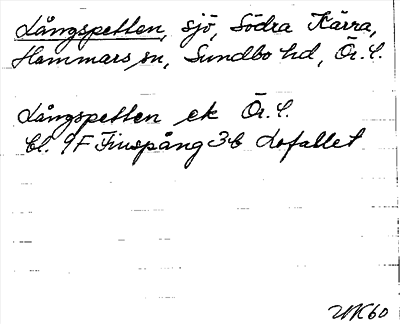 Långspetten, sjö, Södra Kärra,
Hammars sn, Sundbo hd, Ör. L.
Långspetten ek Ör. L.
bl. 9F Finspång 3b Lofallet
UK60